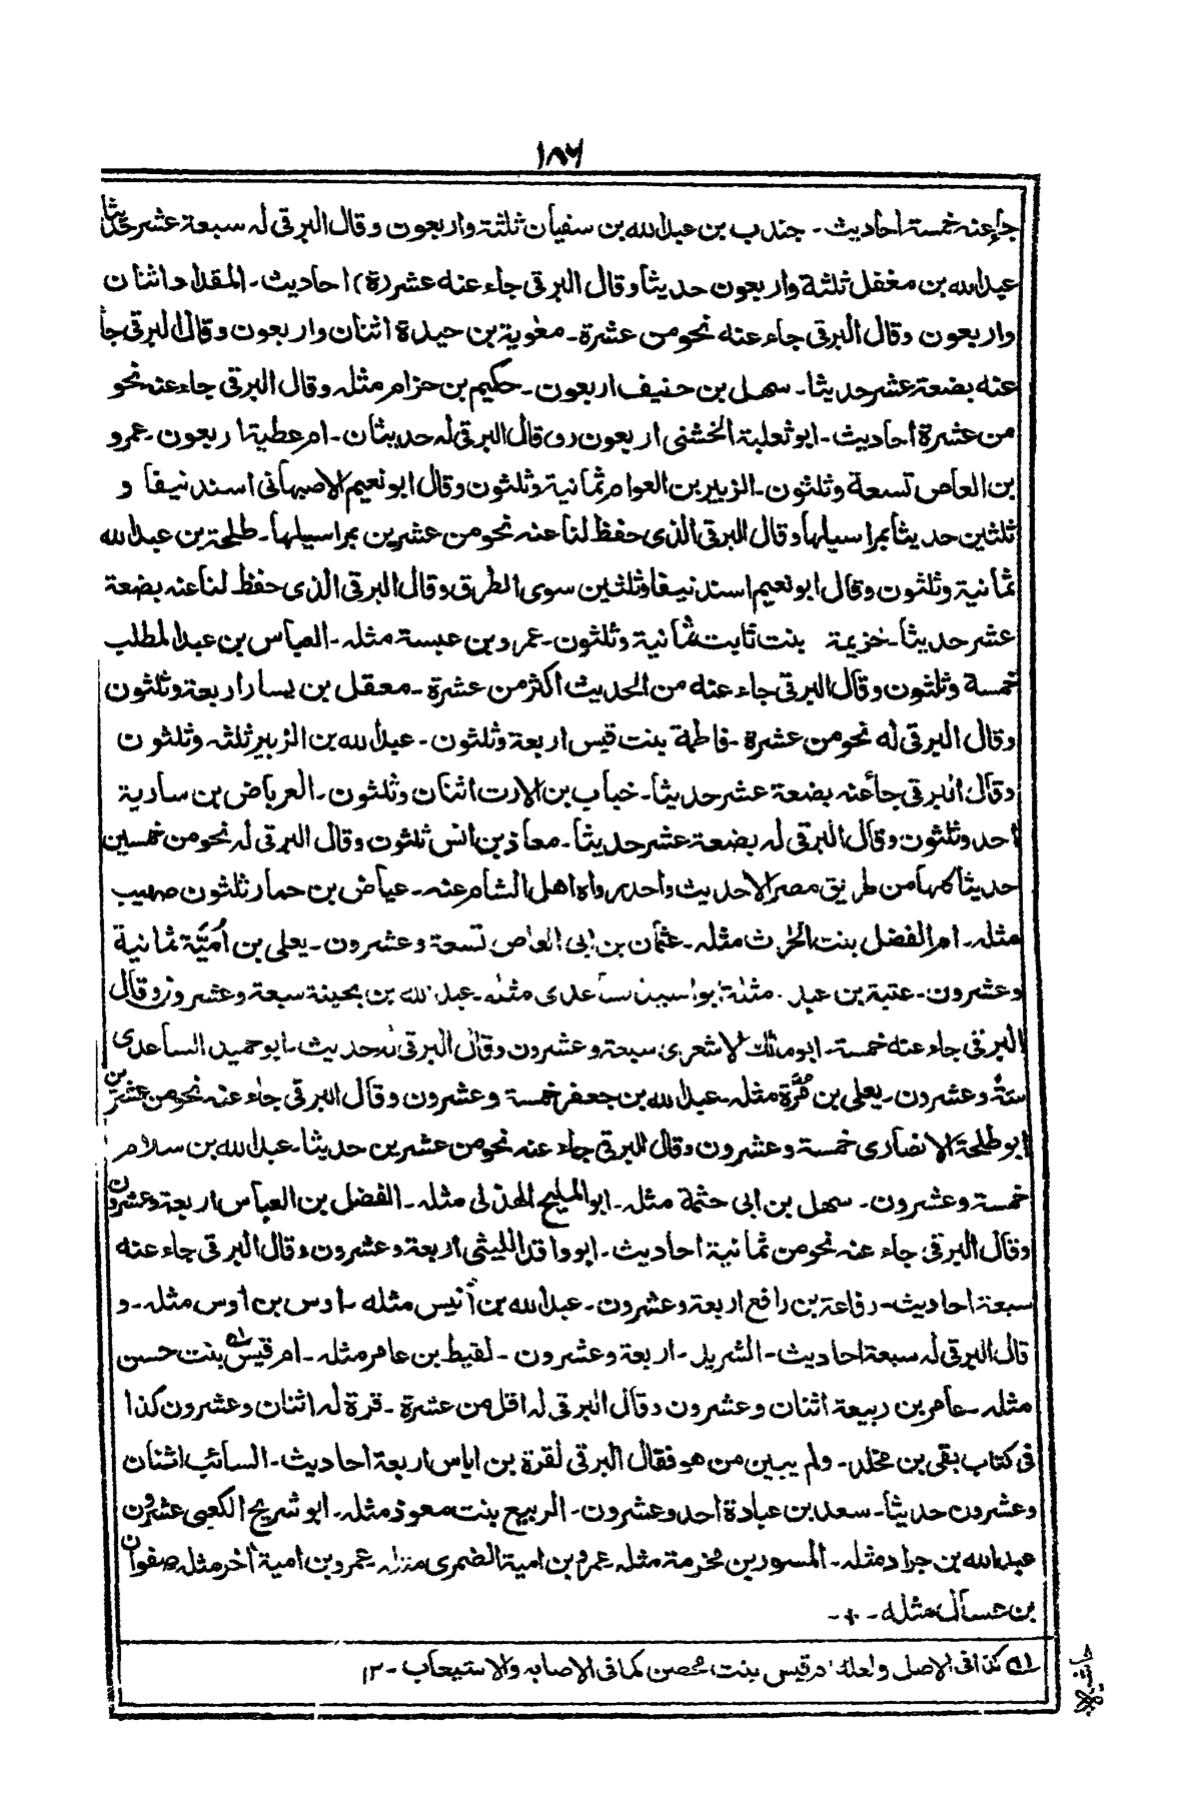 ١٨٦
جاء عنه خمسة احاديث۔ جندب بن عبدالله بن سفيان ثلثة واربعون وقال البرقى له سبعة عشر حديثا
عبدالله بن مغفل ثلثة واربعون حديثا وقال البرقى جاء عنه عشر(ة) احاديث۔ المقداد اثنان
واربعون وقال البرقى جاء عنه نحو من عشرة۔ معوية بن حيدة اثنان واربعون وقال البرقى جاء
عنه بضعة عشر حديثا۔ سهل بن حنيف اربعون۔ حكيم بن حزام مثله وقال البرقى جاء عنه نحو
من عشرة احاديث۔ ابو ثعلبة الخشنى اربعون وقال البرقى له حديثان۔ ام عطية اربعون۔ عمرو
بن العاص تسعة وثلثون۔ الزبير بن العوام ثمانية وثلثون وقال ابو نعيم الاصبهانى اسند نيفا و
ثلثين حديثا بمراسيلها وقال البرقى الذى حفظ لنا عنه نحو من عشرين بمراسيلها۔ طلحة بن عبدالله
ثمانية وثلثون وقال ابو نعيم اسند نيفا وثلثين سوى الطرق وقال البرقى الذى حفظ لنا عنه بضعة
عشر حديثا۔ خزيمة بنت ثابت ثمانية وثلثون۔ عمرو بن عبسة مثله۔ العباس بن عبدالمطلب
خمسة وثلثون وقال البرقى جاء عنه من الحديث اكثر من عشرة۔ معقل بن يسار اربعة وثلثون
وقال البرقى له نحو من عشرة۔ فاطمة بنت قيس اربعة وثلثون۔ عبدالله بن الزبير ثلثه وثلثون
وقال البرقى جاء عنه بضعة عشر حديثا۔ خباب بن الارت اثنان وثلثون۔ العرباض بن سارية
احد وثلثون وقال البرقى له بضعة عشر حديثا۔ معاذ بن انس ثلثون وقال البرقى له نحو من خمسين
حديثا كلها من طريق مصر الا حديث واحد رواه اهل الشام عنه۔ عياض بن حمار ثلثون صهيب
مثله۔ ام الفضل بنت الحرث مثله۔ عثمان بن ابى العاص تسعة وعشرون۔ يعلى بن اُمَيَّة ثمانية
وعشرون۔ عتبة بن عبد۔ مثله ابو اسيد ساعدى مثله۔ عبدالله بن بحينة سبعة وعشرون وقال
البرقى جاء عنه خمسة۔ ابو مالك الاشعرى سبعة وعشرون وقال البرقى له حديث۔ ابو حميد الساعدى
ستة وعشرون۔ يعلى بن مُرَّة مثله۔ عبدالله بن جعفر خمسة وعشرون وقال البرقى جاء عنه نحو من عشرين
ابو طلحة الانصارى خمسة وعشرون وقال البرقى جاء عنه نحو من عشرين حديثا۔ عبدالله بن سلام
خمسة وعشرون۔ سهل بن ابى حثمة مثله۔ ابو المليح الهذلى مثله۔ الفضل بن العباس اربعة وعشرون
وقال البرقى جاء عنه نحو من ثمانية احاديث۔ ابو واقد الليثى اربعة وعشرون وقال البرقى جاء عنه
سبعة احاديث۔ رفاعة بن رافع اربعة وعشرون۔ عبدالله بن أنيس مثله۔ اوس بن اوس مثله۔ و
قال البرقى له سبعة احاديث۔ الشريد۔ اربعة وعشرون۔ لقيط بن عامر مثله۔ ام قيس ا؎ بنت حسن
مثله۔ عامر بن ربيعة اثنان وعشرون وقال البرقى له اقل من عشرة۔ قرة له اثنان وعشرون كذا
فى كتاب بقى بن مخلد۔ ولم يبين من هو فقال البرقى لقرة بن اياس اربعة احاديث۔ السائب اثنان
وعشرون حديثا۔ سعد بن عبادة احد وعشرون۔ الربيع بنت معوذ مثله۔ ابو شريح الكعبى عشرون
عبدالله بن جراد مثله۔ المسور بن مخرمة مثله۔ عمرو بن امية الضمرى مثله۔ عمرو بن امية آخر مثله۔ صفوان
بن عسال مثله۔
ا؎ كذا فى الاصل ولعله ام قيس بنت محصن كما فى الاصابه والاستيعاب۔ ١٢
حاشيه